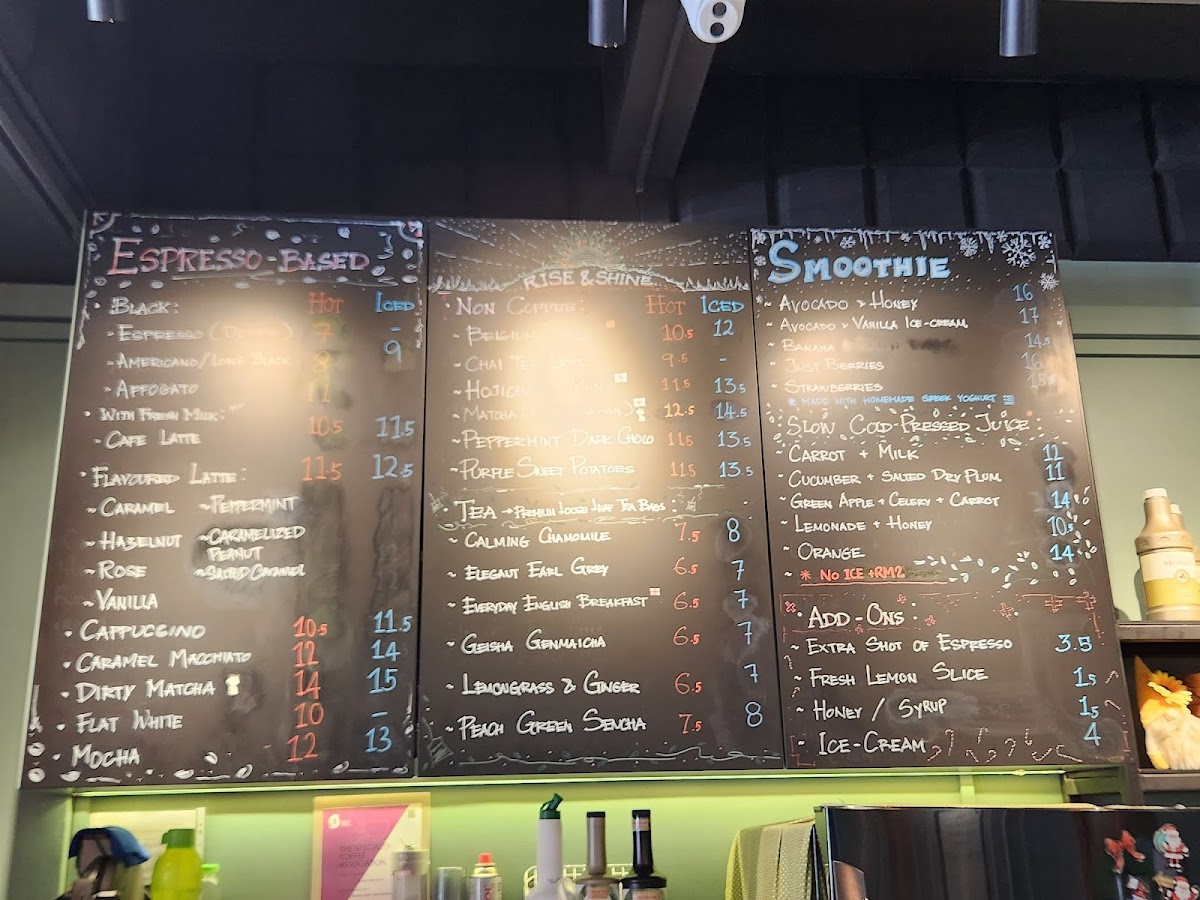 ESPRESSO-BASED
• BLACK: HOT ICED
~ ESPRESSO 7 -
~ AMERICANO/LONG BLACK 8 9
~ AFFOGATO 11
• WITH FRESH MILK:
~ CAFE LATTE 10.5 11.5
• FLAVOURED LATTE: 11.5 12.5
~ CARAMEL ~ PEPPERMINT
~ HAZELNUT ~ CARAMELIZED
PEANUT
~ ROSE ~ SALTED CARAMEL
~ VANILLA
• CAPPUCCINO 10.5 11.5
• CARAMEL MACCHIATO 12 14
• DIRTY MATCHA 14 15
• FLAT WHITE 10 -
• MOCHA 12 13
RISE & SHINE
• NON COFFEE: HOT ICED
~ BELGIUM 10.5 12
~ CHAI TEA 9.5 -
~ HOJICHA 11.5 13.5
~ MATCHA 12.5 14.5
~ PEPPERMINT DARK CHOCO 11.5 13.5
~ PURPLE SWEET POTATOES 11.5 13.5
• TEA → PREMIUM LOOSE LEAF TEA BAGS:
~ CALMING CHAMOMILE 7.5 8
~ ELEGANT EARL GREY 6.5 7
~ EVERYDAY ENGLISH BREAKFAST 6.5 7
~ GEISHA GENMAICHA 6.5 7
~ LEMONGRASS & GINGER 6.5 7
~ PEACH GREEN SENCHA 7.5 8
SMOOTHIE
~ AVOCADO + HONEY 16
~ AVOCADO + VANILLA ICE-CREAM 17
~ BANANA 14.5
~ JUST BERRIES 16
~ STRAWBERRIES 15.5
* MADE WITH HOMEMADE GREEK YOGHURT
SLOW COLD-PRESSED JUICE:
~ CARROT + MILK 12
~ CUCUMBER + SALTED DRY PLUM 11
~ GREEN APPLE + CELERY + CARROT 14
~ LEMONADE + HONEY 10.5
~ ORANGE 14
~ * NO ICE +RM2
• ADD-ONS:
~ EXTRA SHOT OF ESPRESSO 3.5
~ FRESH LEMON SLICE 1.5
~ HONEY / SYRUP 1.5
~ ICE-CREAM 4
THE SPECIALTY
COFFEE
ASSOCIATION